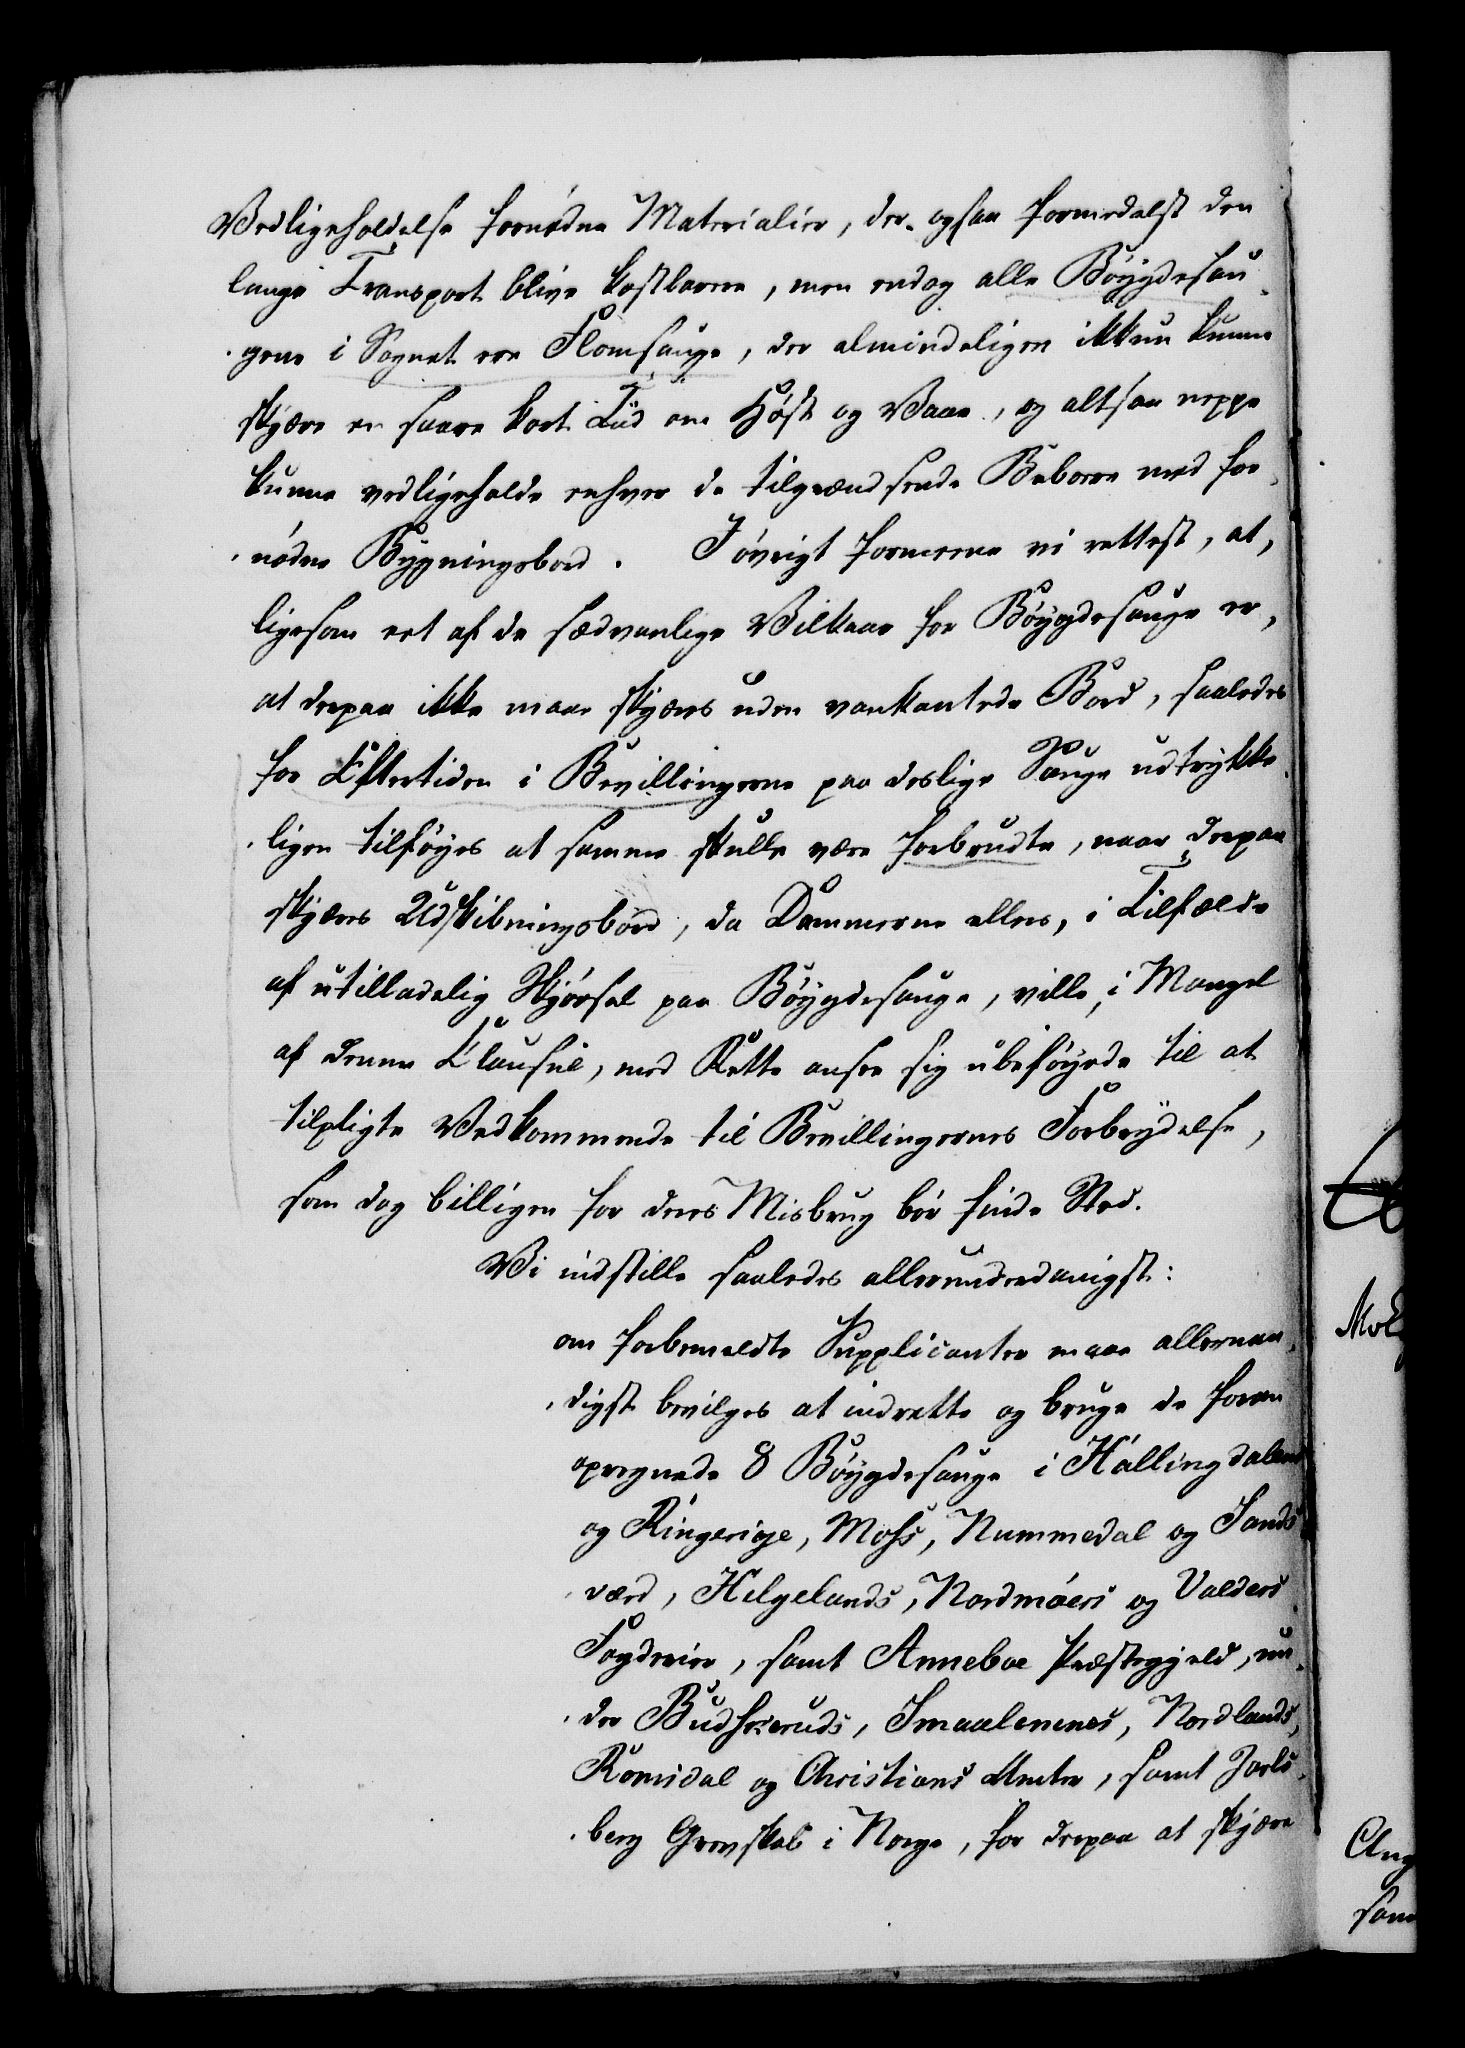 Vedligeholdelse fornødne Materialier, der ogsaa formedelst den
lange Transport blive kostbarere, men endog alle Böÿgdesau-
gene i Sognet ere Flomsauge, der almindeligen ikkun kunne
skjære en saare kort Tiid om Høst og Vaar, og altsaa neppe
kunne vedligeholde enhver de tilgrændsende Beboere med for-
nødne Bÿgningsbord. Iøvrigt formeene vi rettest, at,
ligesom eet af de sædvanlige Vilkaar for Böÿgdesauge er,
at derpaa ikke maae skjæres uden vankantede Bord, saaledes
for Eftertiden i Bevillingerne paa deslige Sauge udtrÿkke-
ligen tilföÿes at samme skulle være forbrudte, naar derpaa
skjæres Udskibningsbord, da Dommerne ellers, i Tilfælde
af utilladelig Skjørsel paa Böÿgdesauge, ville, i Mangel
af denne Clausul, med Rette ansee sig ubeföÿede til at
tilpligte Vedkommende til Bevillingernes Forbrÿdelse,
som dog billigen for deres Misbrug bør finde Sted.
Vi indstille saaledes allerunderdanigst:
om forbemeldte Supplicanter maae allernaa-
digst bevilges at indrette og bruge de foran
opregnede 8 Böÿgdesauge i Hallingdalens
og Ringerige, Moss, Nummedal og Sands-
værd, Helgelands, Nordmøers og Valders
Fogderier, samt Anneboe Præstegjeld, un-
der Budskeruds, Smaalenenes, Nordlands,
Romsdal og Christians Amter, samt Jarls-
berg Grevskab i Norge, for derpaa at skjære